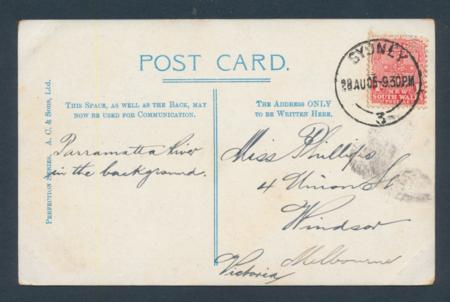 POST CARD.
THIS SPACE, AS WELL AS THE BACK, MAY
NOW BE USED FOR COMMUNICATION.
THE ADDRESS ONLY
TO BE WRITTEN HERE.
PERFECTION SERIES. A. C. & Sons, Ltd.
Parramatta River
in the background.
SYDNEY
28 AU 05 - 9.30PM
3
SOUTH WALES
Miss Phillips
4 Union St
Windsor
Melbourne
Victoria